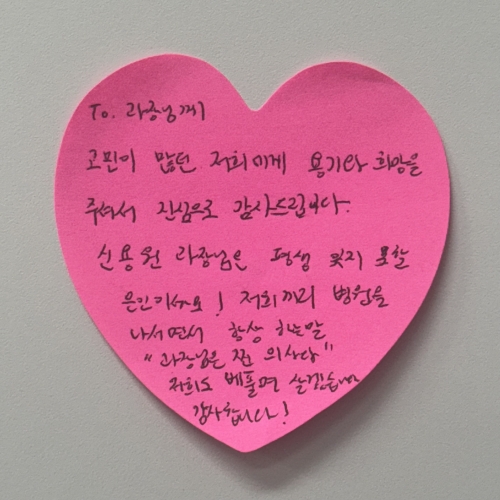 To. 과장님께
고민이 많던 저희에게 용기와 희망을
주셔서 진심으로 감사드립니다.
신용원 과장님은 평생 잊지 못할
은인이세요! 저희끼리 병원을
나서면서 항상 하는말
"과장님은 찐 의사다"
저희도 베풀며 살겠습니다
감사합니다!